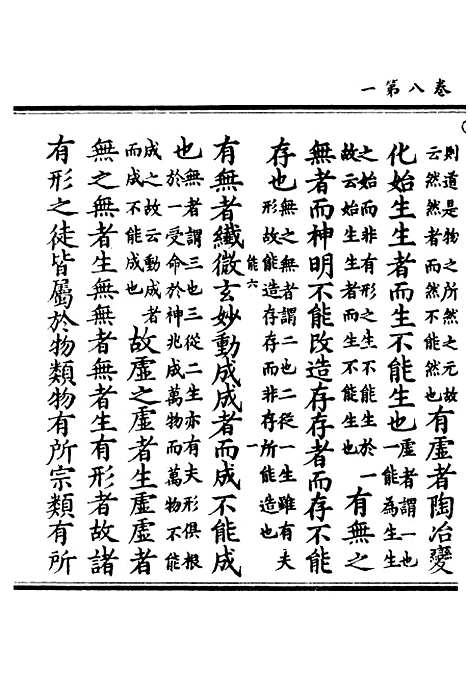 卷八第一
則道是物之所然之元故
云然然者而然不能然也
有虛者陶冶變
化始生生者而生不能生也
虛者謂一也
一能為生生
之始而非有形之生不能生於一
故云始生生者而生不能生也
有無之
無者而神明不能改造存存者而存不能
存也
無之無者謂二也二從一生雖有夫
形故能造存存而非存所能造也
能六
一
有無者纖微玄妙動成成者而成不能成
也
無者謂三也三從二生亦有夫形俱根
於一受命於神兆成萬物而萬物不能
成之故云動成者
而成不能成也
故虛之虛者生虛虛者
無之無者生無無者無者生有形者故諸
有形之徒皆屬於物類物有所宗類有所